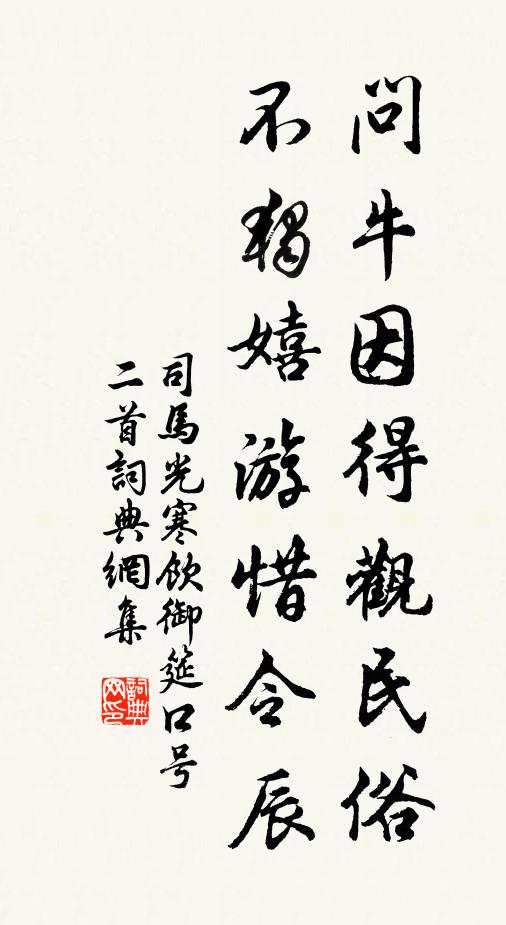 問牛因得觀民俗
不獨嬉游惜令辰
司馬光寒飲御筵口号
二首詞典網集
詞典
网印